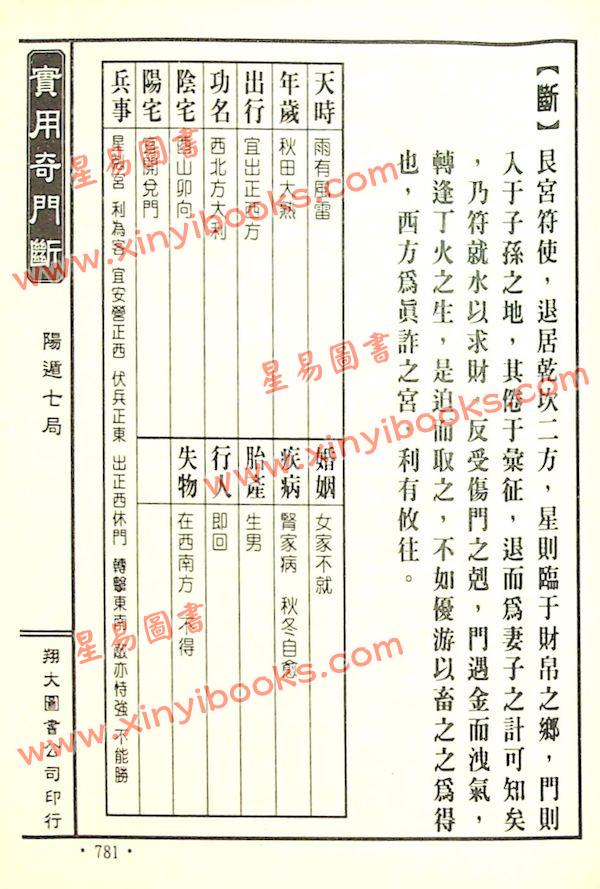 【斷】艮宮符使，退居乾坎二方，星則臨于財帛之鄉，門則
入于子孫之地，其倦于彙征，退而為妻子之計可知矣
，乃符就水以求財，反受傷門之剋，門遇金而洩氣，
轉逢丁火之生，是迫而取之，不如優游以畜之之為得
也，西方為眞詐之宮，利有攸往。
天時 雨有風雷
年歲 秋田大熟
出行 宜出正西方
功名 西北方大利
陰宅 酉山卯向
陽宅 宜開兌門
婚姻 女家不就
疾病 腎家病 秋冬自愈
胎產 生男
行人 即回
失物 在西南方 不得
兵事 星剋宮 利為客 宜安營正西 伏兵正東 出正西休門 轉擊東南 敵亦恃強 不能勝
實用奇門斷
陽遁七局
翔大圖書公司印行
·781·
星易圖書
www.xinyibooks.com
星易圖書
www.xinyibooks.com
星易圖書
www.xinyibooks.com